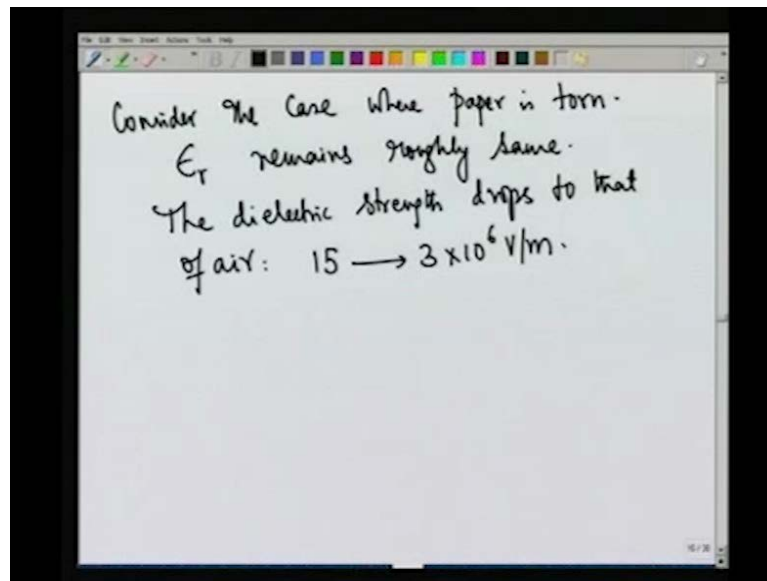 File Edit View Insert Actions Tools Help
Consider the case where paper is torn.
ϵr remains roughly same.
The dielectric strength drops to that
of air: 15 ⟶ 3 × 10⁶ V/m.